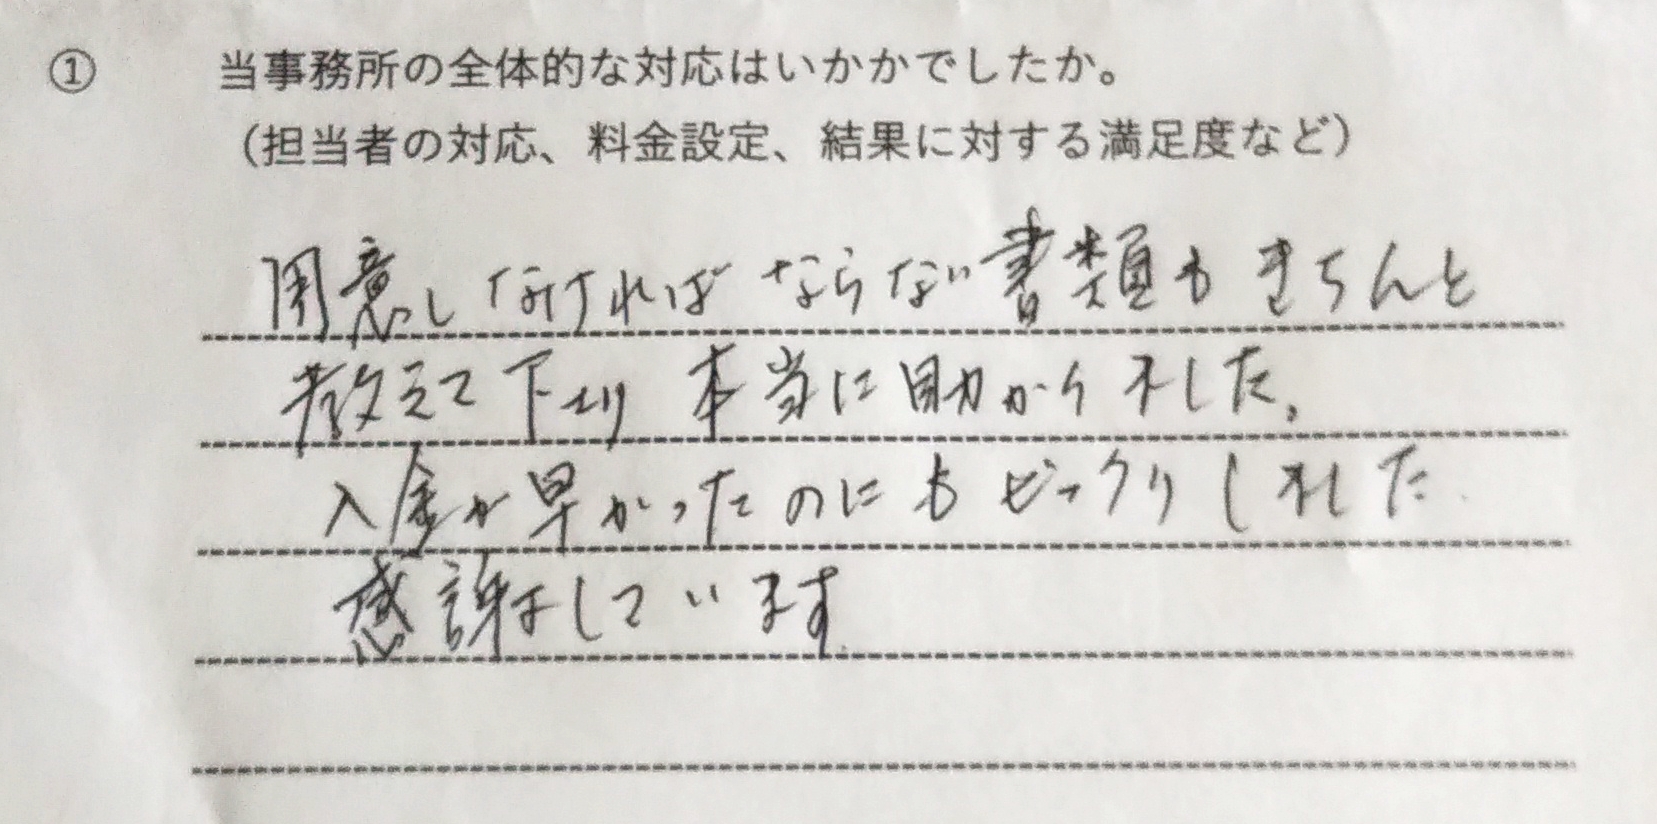 ① 当事務所の全体的な対応はいかかでしたか。
（担当者の対応、料金設定、結果に対する満足度など）
用意しなければならない書類もきちんと
教えて下さり 本当に助かりました。
入金が早かったのにもビックリしました.
感謝しています.